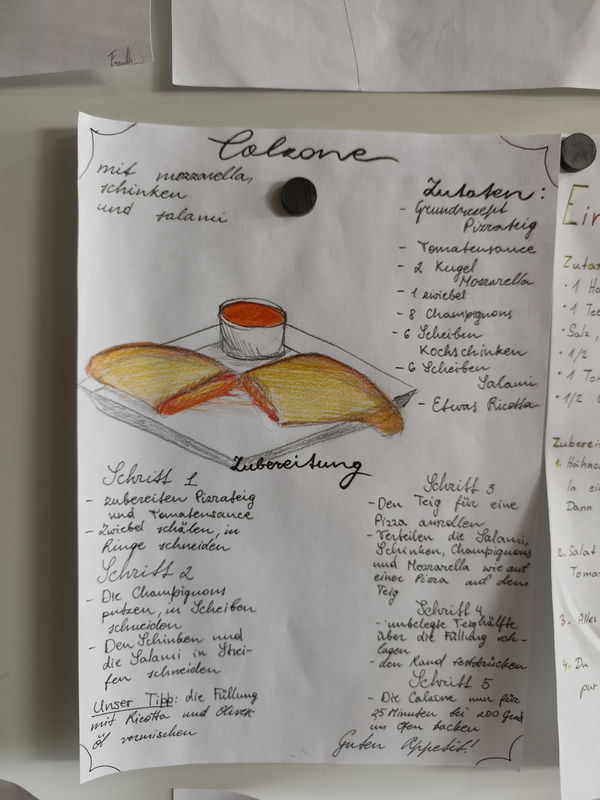 Calzone
mit mozzarella,
schinken
und salami
Zutaten:
- Grundrezept
Pizzateig
- Tomatensauce
- 2 Kugel
Mozzarella
- 1 zwiebel
- 8 Champignons
- 6 Scheiben
Kochschinken
- 6 Scheiben
Salami
- Etwas Ricotta
Zubereitung
Schritt 1
- zubereiten Pizzateig
und Tomatensauce
- zwiebel schälen, in
Ringe schneiden
Schritt 2
- Die Champignons
putzen, in Scheiben
schneiden
- Den Schinken und
die Salami in Strei-
fen schneiden
Unser Tipp: die Füllung
mit Ricotta und Oliven-
öl vermischen
Schritt 3
- Den Teig für eine
Pizza ausrollen
- Verteilen die Salami,
Schinken, Champignons
und Mozzarella wie auf
einer Pizza auf dem
Teig
Schritt 4
- unbelegte Teighälfte
über die Füllung sch-
lagen
- den Rand festdrücken
Schritt 5
- Die Calzone nun für
25 Minuten bei 200 Grad
im Ofen backen
Guten Appetit!
Zutat
• 1
• 1
Salz,
• 1/2
• 1
• 1/2
Zuberei
1. Hähnc
In
Dann
2. Salat
Toma
3. Alles
4. Du
pur